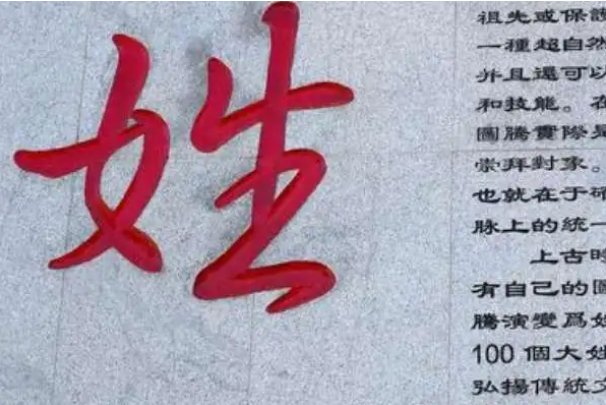 姓
祖先或保護
一種超自然
并且還可以
和技能。在
圖騰實際是
崇拜對象。
也就在于確
脉上的統一
上古時
有自己的圖
騰演變爲姓
100個大姓
弘揚傳統文